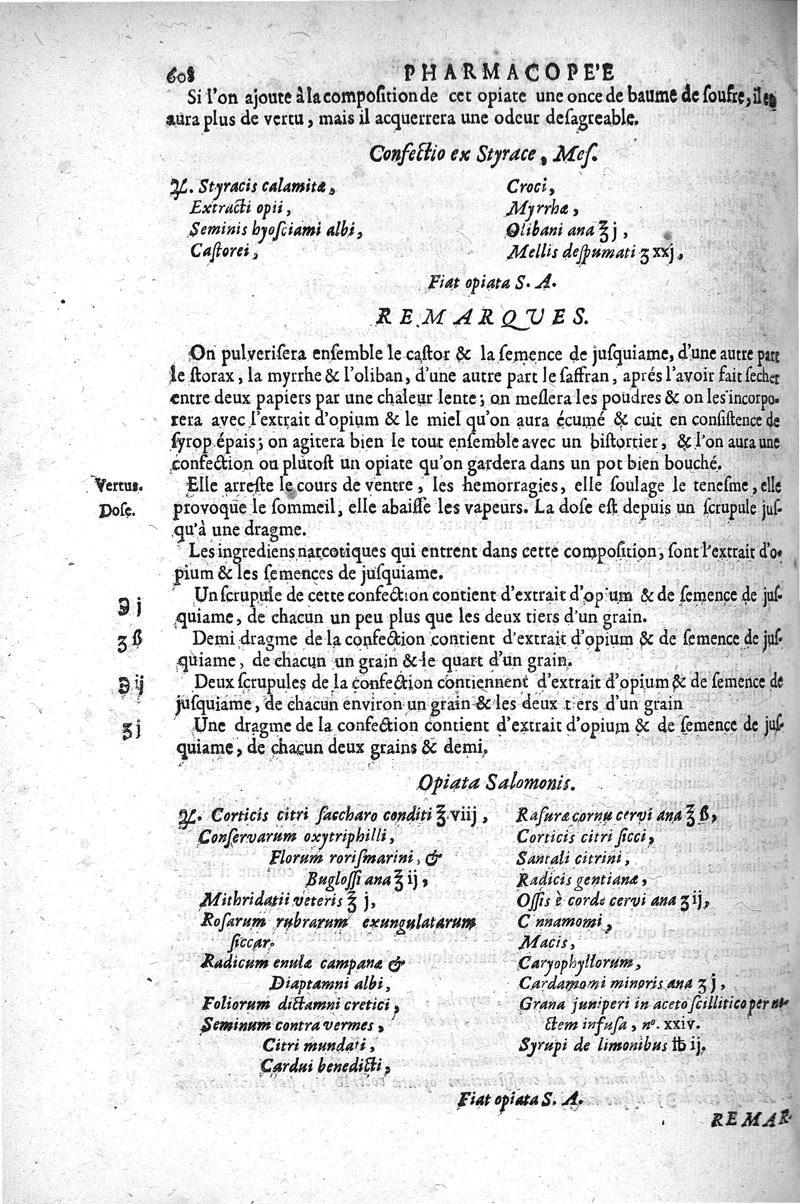 608 PHARMACOPE'E
Si l'on ajoute à la composition de cet opiate une once de baume de soufre, il en
aura plus de vertu, mais il acquerrera une odeur desagreable.
Confectio ex Styrace, Mes.
℞. Styracis calamitæ,
Extracti opii,
Seminis hyosciami albi,
Castorei,
Croci,
Myrrhæ,
Olibani ana ℥ j,
Mellis despumati ʒ xxj,
Fiat opiata S. A.
REMARQUES.
On pulverisera ensemble le castor & la semence de jusquiame, d'une autre part
le storax, la myrrhe & l'oliban, d'une autre part le saffran, aprés l'avoir fait secher
entre deux papiers par une chaleur lente; on meslera les poudres & on les incorpo-
rera avec l'extrait d'opium & le miel qu'on aura écumé & cuit en consistence de
syrop épais; on agitera bien le tout ensemble avec un bistortier, & l'on aura une
confection ou plutost un opiate qu'on gardera dans un pot bien bouché.
Vertus. Elle arreste le cours de ventre, les hemorragies, elle soulage le tenesme, elle
Dose. provoque le sommeil, elle abaisse les vapeurs. La dose est depuis un scrupule jus-
qu'à une dragme.
Les ingrediens narcotiques qui entrent dans cette composition, sont l'extrait d'o-
pium & les semences de jusquiame.
℈ j Un scrupule de cette confection contient d'extrait d'opium & de semence de jus-
quiame, de chacun un peu plus que les deux tiers d'un grain.
ʒ ß Demi dragme de la confection contient d'extrait d'opium & de semence de jus-
quiame, de chacun un grain & le quart d'un grain.
℈ ij Deux scrupules de la confection contiennent d'extrait d'opium & de semence de
jusquiame, de chacun environ un grain & les deux tiers d'un grain
ʒ j Une dragme de la confection contient d'extrait d'opium & de semence de jus-
quiame, de chacun deux grains & demi.
Opiata Salomonis.
℞. Corticis citri saccharo conditi ℥ viij,
Conservarum oxytriphilli,
Florum rorismarini, &
Buglossi ana ℥ ij,
Mithridatii veteris ℥ j,
Rosarum rubrarum exungulatarum
siccar.
Radicum enulæ campanæ &
Diaptamni albi,
Foliorum dictamni cretici,
Seminum contra vermes,
Citri mundati,
Cardui benedicti,
Rasuræ cornu cervi ana ℥ ß,
Corticis citri sicci,
Santali citrini,
Radicis gentianæ,
Ossis è corde cervi ana ʒ ij,
C nnamomi,
Macis,
Caryophyllorum,
Cardamomi minoris ana ʒ j,
Grana juniperi in aceto scillitico per no-
ctem infusa, nº. xxiv.
Syrupi de limonibus ℔ ij.
Fiat opiata S. A.
REMAR-